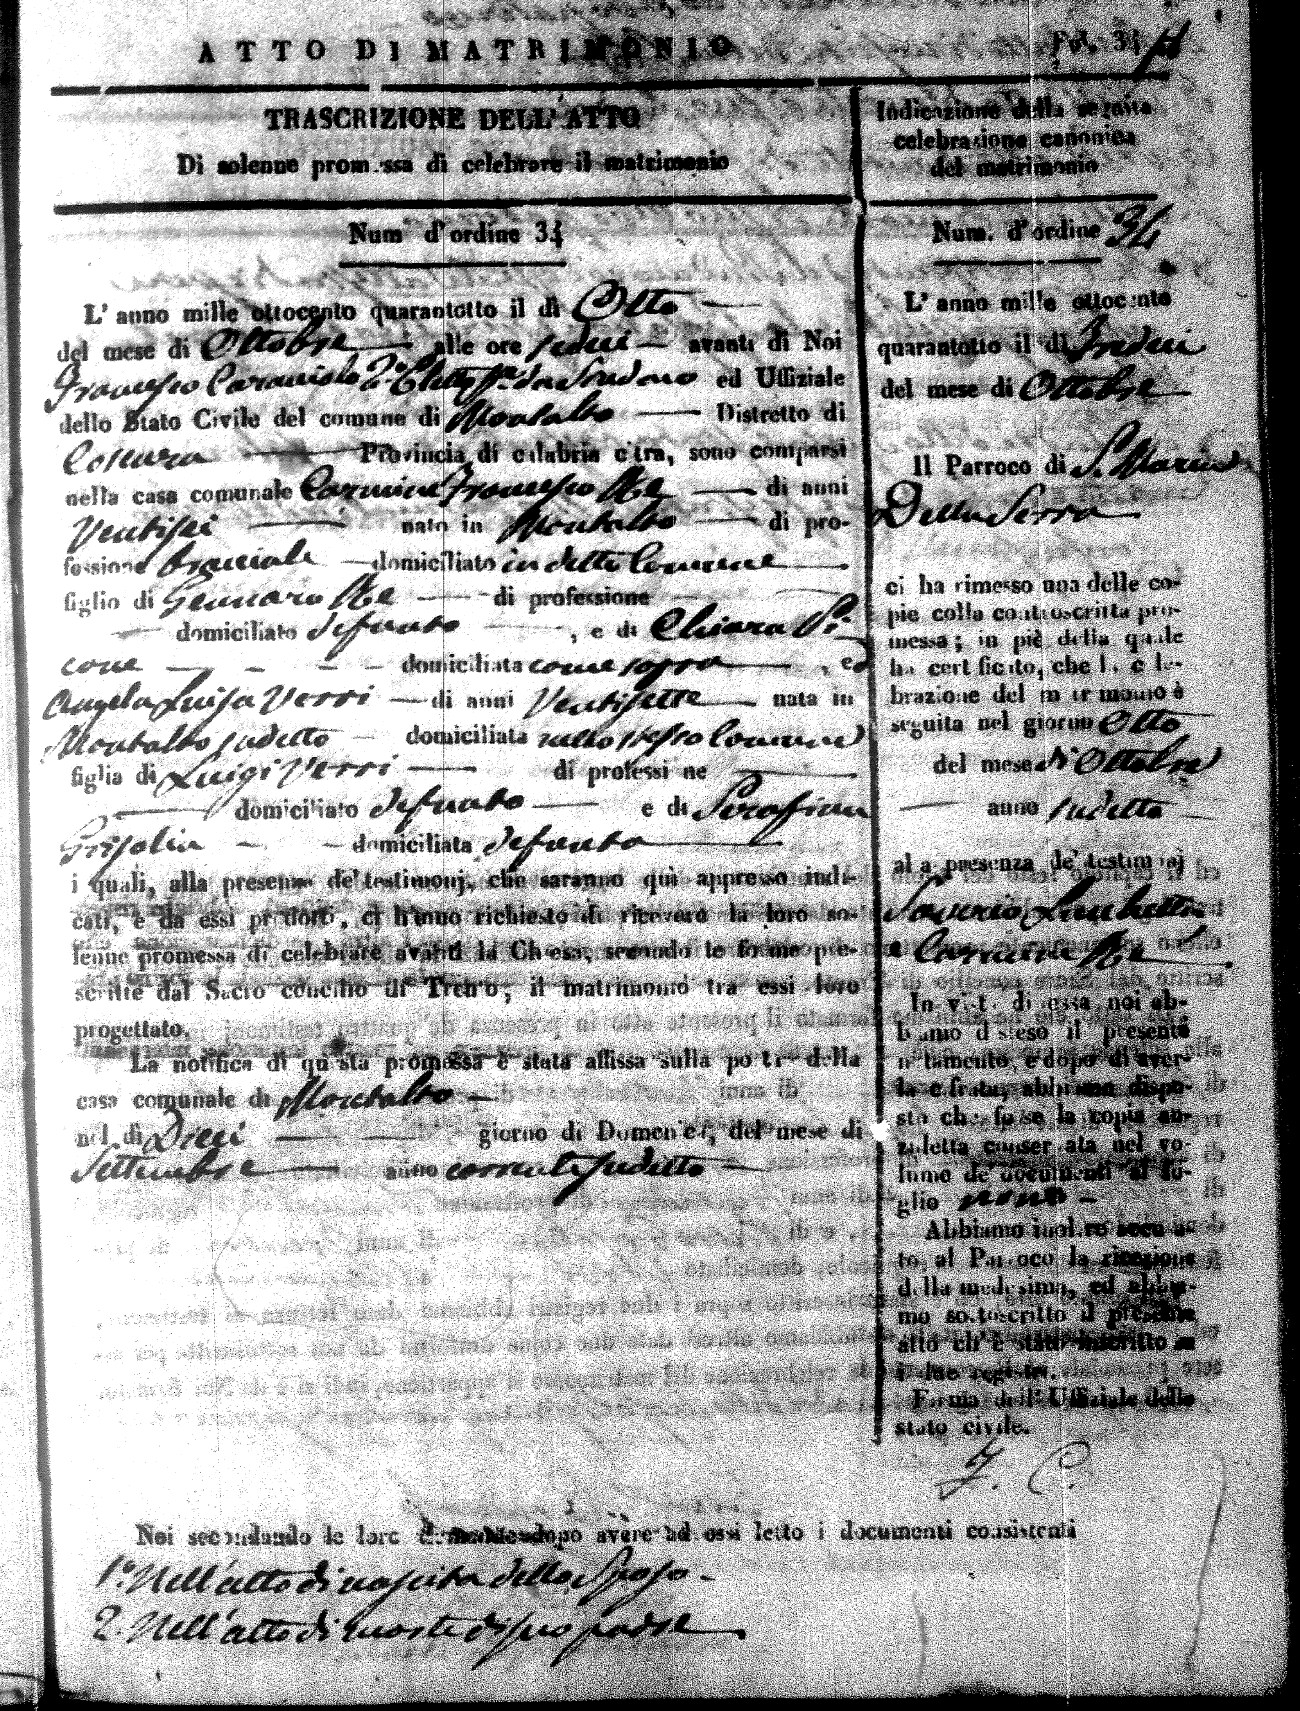 ATTO DI MATRIMONIO
Fol. 34
TRASCRIZIONE DELL' ATTO
Di solenne promessa di celebrare il matrimonio
Num d'ordine 34
L' anno mille ottocento quarantotto il dì Otto
del mese di Ottobre alle ore sedici avanti di Noi
Francesco 2° Eletto da Sindaco ed Uffiziale
dello Stato Civile del comune di Montalto Distretto di
Cosenza Provincia di calabria citra, sono comparsi
nella casa comunale Carmine Francesco di anni
Ventisei nato in Montalto di pro-
fessione bracciale domiciliato in detto Comune
figlio di Gennaro di professione
domiciliato defunto , e di Chiara Pi
cone domiciliata come sopra , ed
Angela Luisa Verri di anni Ventisette nata in
Montalto sudetto domiciliata nello stesso Comune
figlia di Luigi Verri di professi ne
domiciliato defunto e di Serafina
Grisolia domiciliata defunta
i quali, alla presenza de' testimonj, che saranno qui appresso indi-
cati, e da essi prodotti, ci hanno richiesto di ricevere la loro so-
lenne promessa di celebrare avanti la Chiesa, secondo le forme pre-
scritte dal Sacro concilio di Trento, il matrimonio tra essi loro
progettato.
La notifica di questa promessa è stata affissa sulla porta della
casa comunale di Montalto
nel dì Dieci giorno di Domenica, del mese di
Settembre anno corrente sudetto
Indicazione della seguita
celebrazione canonica
del matrimonio
Num. d'ordine 34
L' anno mille ottocento
quarantotto il dì Tredici
del mese di Ottobre
Il Parroco di S. Maria
Della Serra
ci ha rimesso una delle co-
pie colla controscritta pro-
messa; in piè della quale
ha certificato, che la cele-
brazione del matrimonio è
seguita nel giorno Otto
del mese di Ottobre
anno sudetto
alla presenza de' testimonj
Saverio
e Carmine
In vista di essa noi ab-
biamo disteso il presente
notamento, e dopo di aver-
la cifrata, abbiamo dispo-
sto che fosse la copia an-
zidetta conservata nel vo-
lume de' documenti al fo-
glio nono
Abbiamo inoltre accusa-
to, al Parroco la ricezione
della medesima, ed abbia-
mo sottoscritto il presente
atto ch' è stato inscritto su
i due registri.
Firma dell' Uffiziale dello
stato civile.
F. C.
Noi secondando le loro domande dopo avere ad essi letto i documenti consistenti
1.° Nell'atto di nascita dello Sposo
2. Nell'atto di morte di suo padre